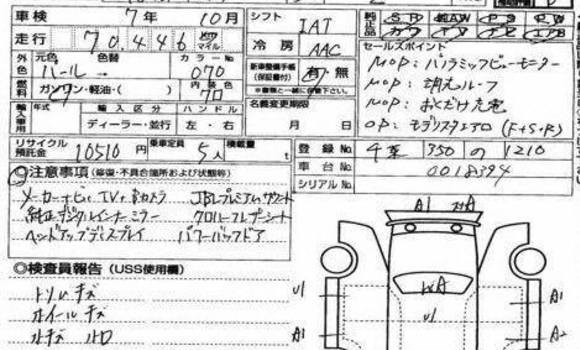 車検 7年 10月 シフト IAT 純正品 SR AW PS PW
走行 70,446 km マイル 冷房 AAC カワ TV ナビ エアB
外色 元色 パール 色替 → カラーNo 070 新車整備手帳(保証書付) 有・無 セールスポイント
※書類と一緒に保管して下さい
MOP:パノラミックビューモニター
燃料 ガソリン・軽油・( ) 内装色 70 名義変更期限 月 日
MOP:調光ルーフ
MOP:おくだけ充電
輸入車用 年式 輸入区分 ディーラー・並行 ハンドル 左・右
OP:モデリスタエアロ(F+S+R)
リサイクル預託金 10510円 乗車定員 5人 積載量 t
登録No. 千葉 350 の 1210
車台No. 0018394
シリアルNo.
◎注意事項(修復・不具合箇所および状態等)
メーカーナビ TV+Bカメラ JBLプレミアムサウンド
純正デジタルインナーミラー クロ/ハーフレザーシート
ヘッドアップディスプレイ パワーバックドア
◎検査員報告(USS使用欄)
トソウ キズ
ホイールキズ
A1
A1
A2
U1
U1